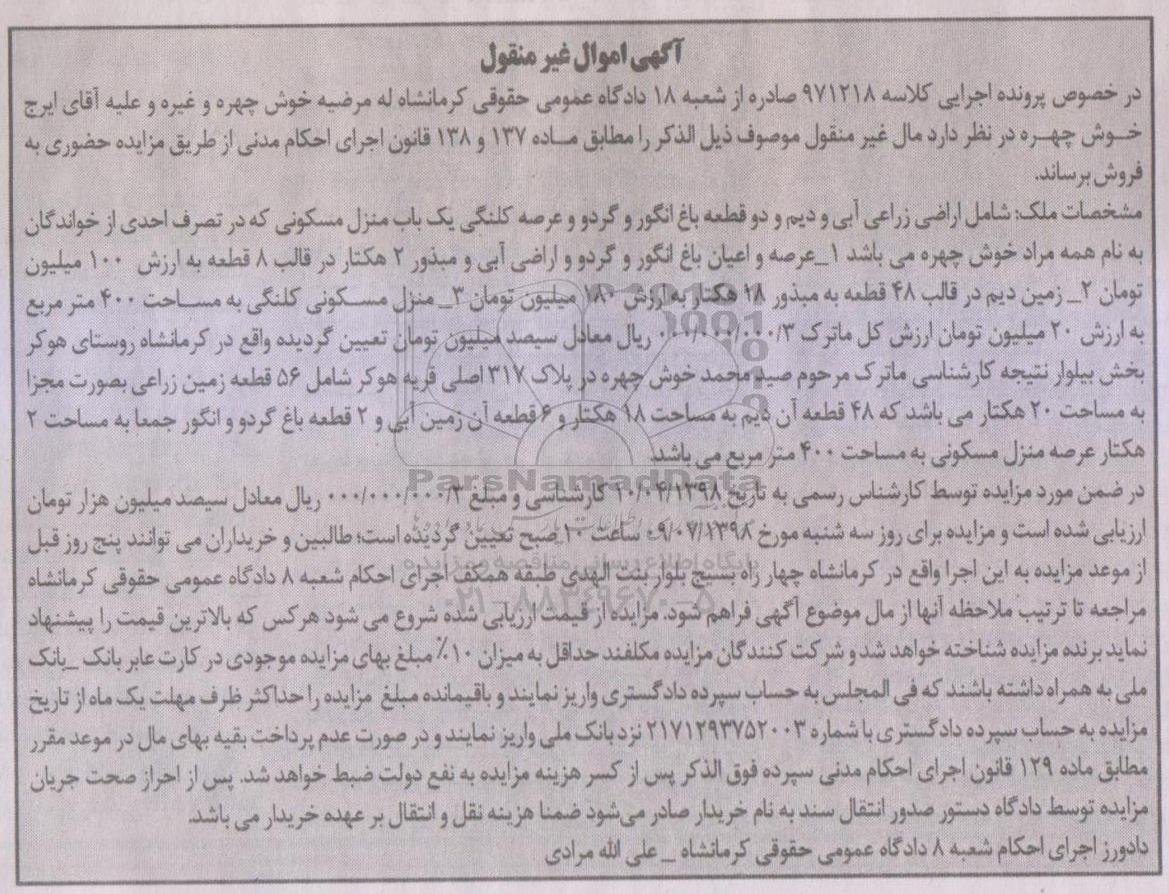 آگهی اموال غیر منقول
در خصوص پرونده اجرایی کلاسه ۹۷۱۲۱۸ صادره از شعبه ۱۸ دادگاه عمومی حقوقی کرمانشاه له مرضیه خوش چهره و غیره و علیه آقای ایرج
خوش چهره در نظر دارد مال غیر منقول موصوف ذیل الذکر را مطابق ماده ۱۳۷ و ۱۳۸ قانون اجرای احکام مدنی از طریق مزایده حضوری به
فروش برساند.
مشخصات ملک: شامل اراضی زراعی آبی و دیم و دو قطعه باغ انگور و گردو و عرصه کلنگی یک باب منزل مسکونی که در تصرف احدی از خواندگان
به نام همه مراد خوش چهره می باشد ۱_عرصه و اعیان باغ انگور و گردو و اراضی آبی و مبذور ۲ هکتار در قالب ۸ قطعه به ارزش ۱۰۰ میلیون
تومان ۲_ زمین دیم در قالب ۴۸ قطعه به مبذور ۱۸ هکتار به ارزش ۱۸۰ میلیون تومان ۳_ منزل مسکونی کلنگی به مساحت ۴۰۰ متر مربع
به ارزش ۲۰ میلیون تومان ارزش کل ماترک ۰۰۰/۰۰۰/۰۰۰/۳ ریال معادل سیصد میلیون تومان تعیین گردیده واقع در کرمانشاه روستای هوکر
بخش بیلوار نتیجه کارشناسی ماترک مرحوم صید محمد خوش چهره در پلاک ۳۱۷ اصلی قریه هوکر شامل ۵۶ قطعه زمین زراعی بصورت مجزا
به مساحت ۲۰ هکتار می باشد که ۴۸ قطعه آن دیم به مساحت ۱۸ هکتار و ۶ قطعه آن زمین آبی و ۲ قطعه باغ گردو و انگور جمعا به مساحت ۲
هکتار عرصه منزل مسکونی به مساحت ۴۰۰ متر مربع می باشد.
ParsNamadData
در ضمن مورد مزایده توسط کارشناس رسمی به تاریخ ۱۳۹۸/۰۴/۲۰ کارشناسی و مبلغ ۰۰۰/۰۰۰/۰۰۰/۳ ریال معادل سیصد میلیون هزار تومان
ارزیابی شده است و مزایده برای روز سه شنبه مورخ ۱۳۹۸/۰۷/۰۹ ساعت ۱۰ صبح تعیین گردیده است؛ طالبین و خریداران می توانند پنج روز قبل
پایگاه اطلاع رسانی مناقصه و مزایده
از موعد مزایده به این اجرا واقع در کرمانشاه چهار راه بسیج بلوار بنت الهدی طبقه همکف اجرای احکام شعبه ۸ دادگاه عمومی حقوقی کرمانشاه
۰۲۱-۸۸۳۴۹۶۷۰-۵
مراجعه تا ترتیب ملاحظه آنها از مال موضوع آگهی فراهم شود. مزایده از قیمت ارزیابی شده شروع می شود هرکس که بالاترین قیمت را پیشنهاد
نماید برنده مزایده شناخته خواهد شد و شرکت کنندگان مزایده مکلفند حداقل به میزان ۱۰٪ مبلغ بهای مزایده موجودی در کارت عابر بانک _بانک
ملی به همراه داشته باشند که فی المجلس به حساب سپرده دادگستری واریز نمایند و باقیمانده مبلغ مزایده را حداکثر ظرف مهلت یک ماه از تاریخ
مزایده به حساب سپرده دادگستری با شماره ۲۱۷۱۲۹۳۷۵۲۰۰۳ نزد بانک ملی واریز نمایند و در صورت عدم پرداخت بقیه بهای مال در موعد مقرر
مطابق ماده ۱۲۹ قانون اجرای احکام مدنی سپرده فوق الذکر پس از کسر هزینه مزایده به نفع دولت ضبط خواهد شد. پس از احراز صحت جریان
مزایده توسط دادگاه دستور صدور انتقال سند به نام خریدار صادر می‌شود ضمنا هزینه نقل و انتقال بر عهده خریدار می باشد.
دادورز اجرای احکام شعبه ۸ دادگاه عمومی حقوقی کرمانشاه _ علی الله مرادی